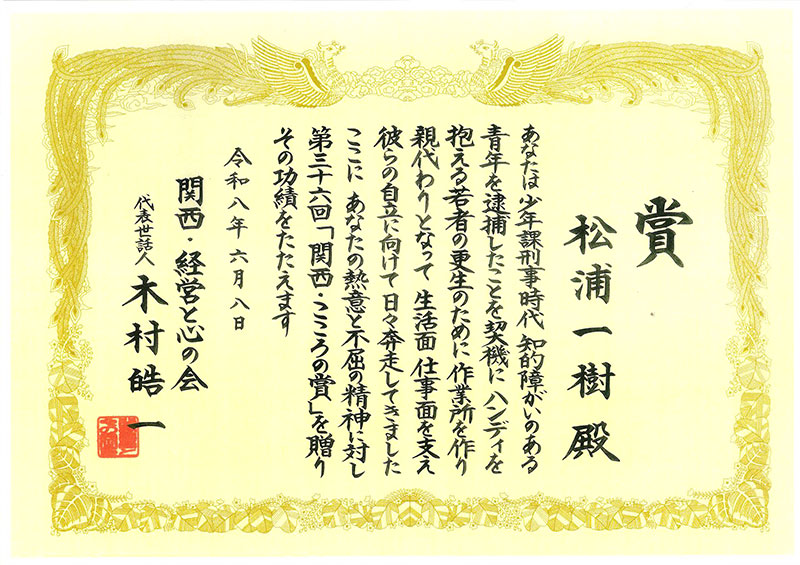 賞
松浦一樹殿
あなたは 少年課刑事時代 知的障がいのある
青年を逮捕したことを契機に ハンディを
抱える若者の更生のために 作業所を作り
親代わりとなって 生活面 仕事面を支え
彼らの自立に向けて 日々奔走してきました
ここに あなたの熱意と不屈の精神に対し
第三十六回「関西・こころの賞」を贈り
その功績をたたえます
令和八年六月八日
関西・経営と心の会
代表世話人 木村皓一